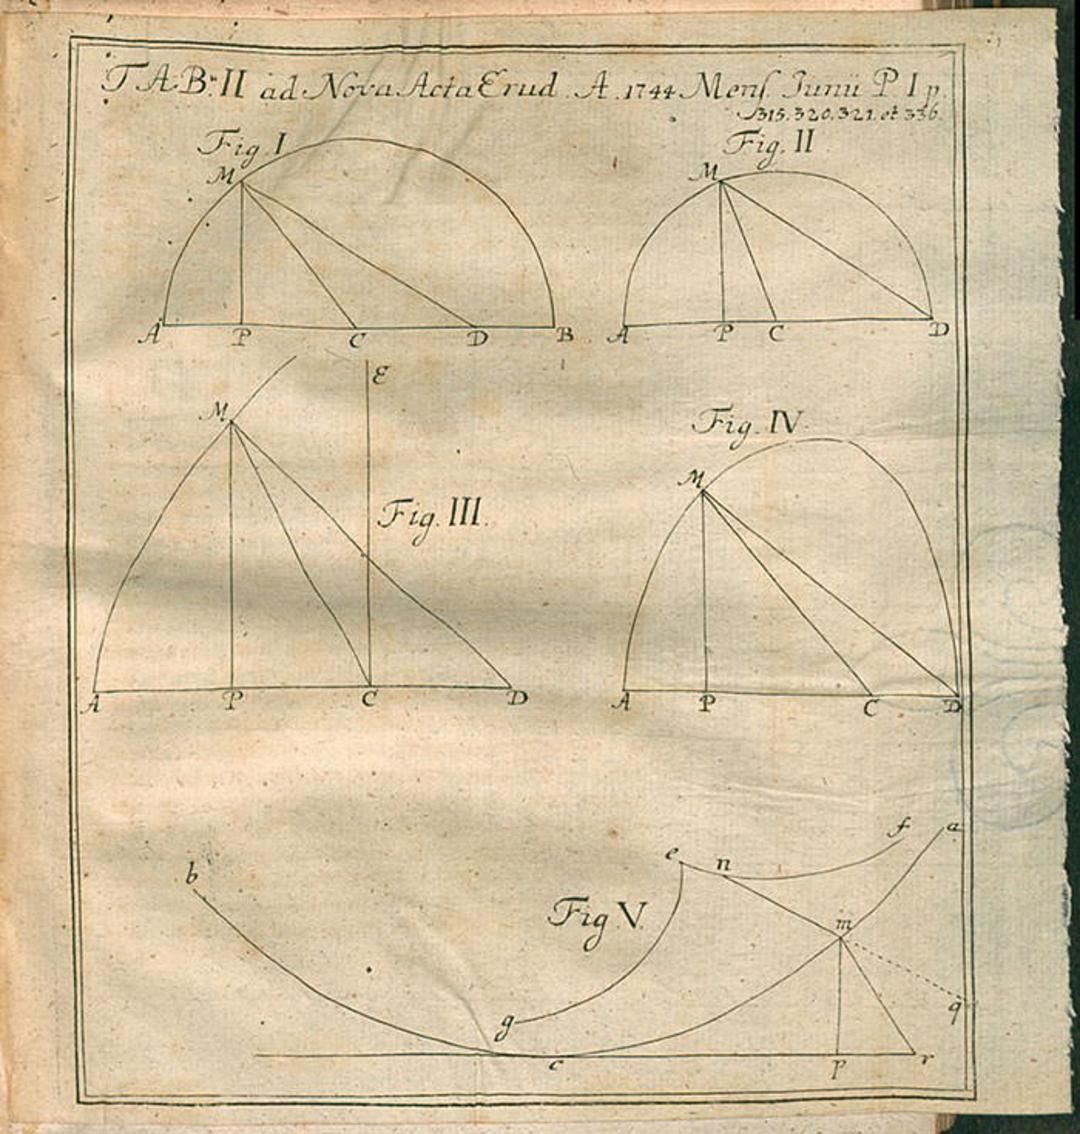 TAB: II ad Nova Acta Erud. A. 1744 Mens. Junii P I p.
315. 320. 321. et 336.
Fig. I
M
A P C D B
Fig. II
M
A P C D
M E
Fig. III.
A P C D
Fig. IV.
M
A P C D
b e n f a
Fig V.
m
g q
c p r